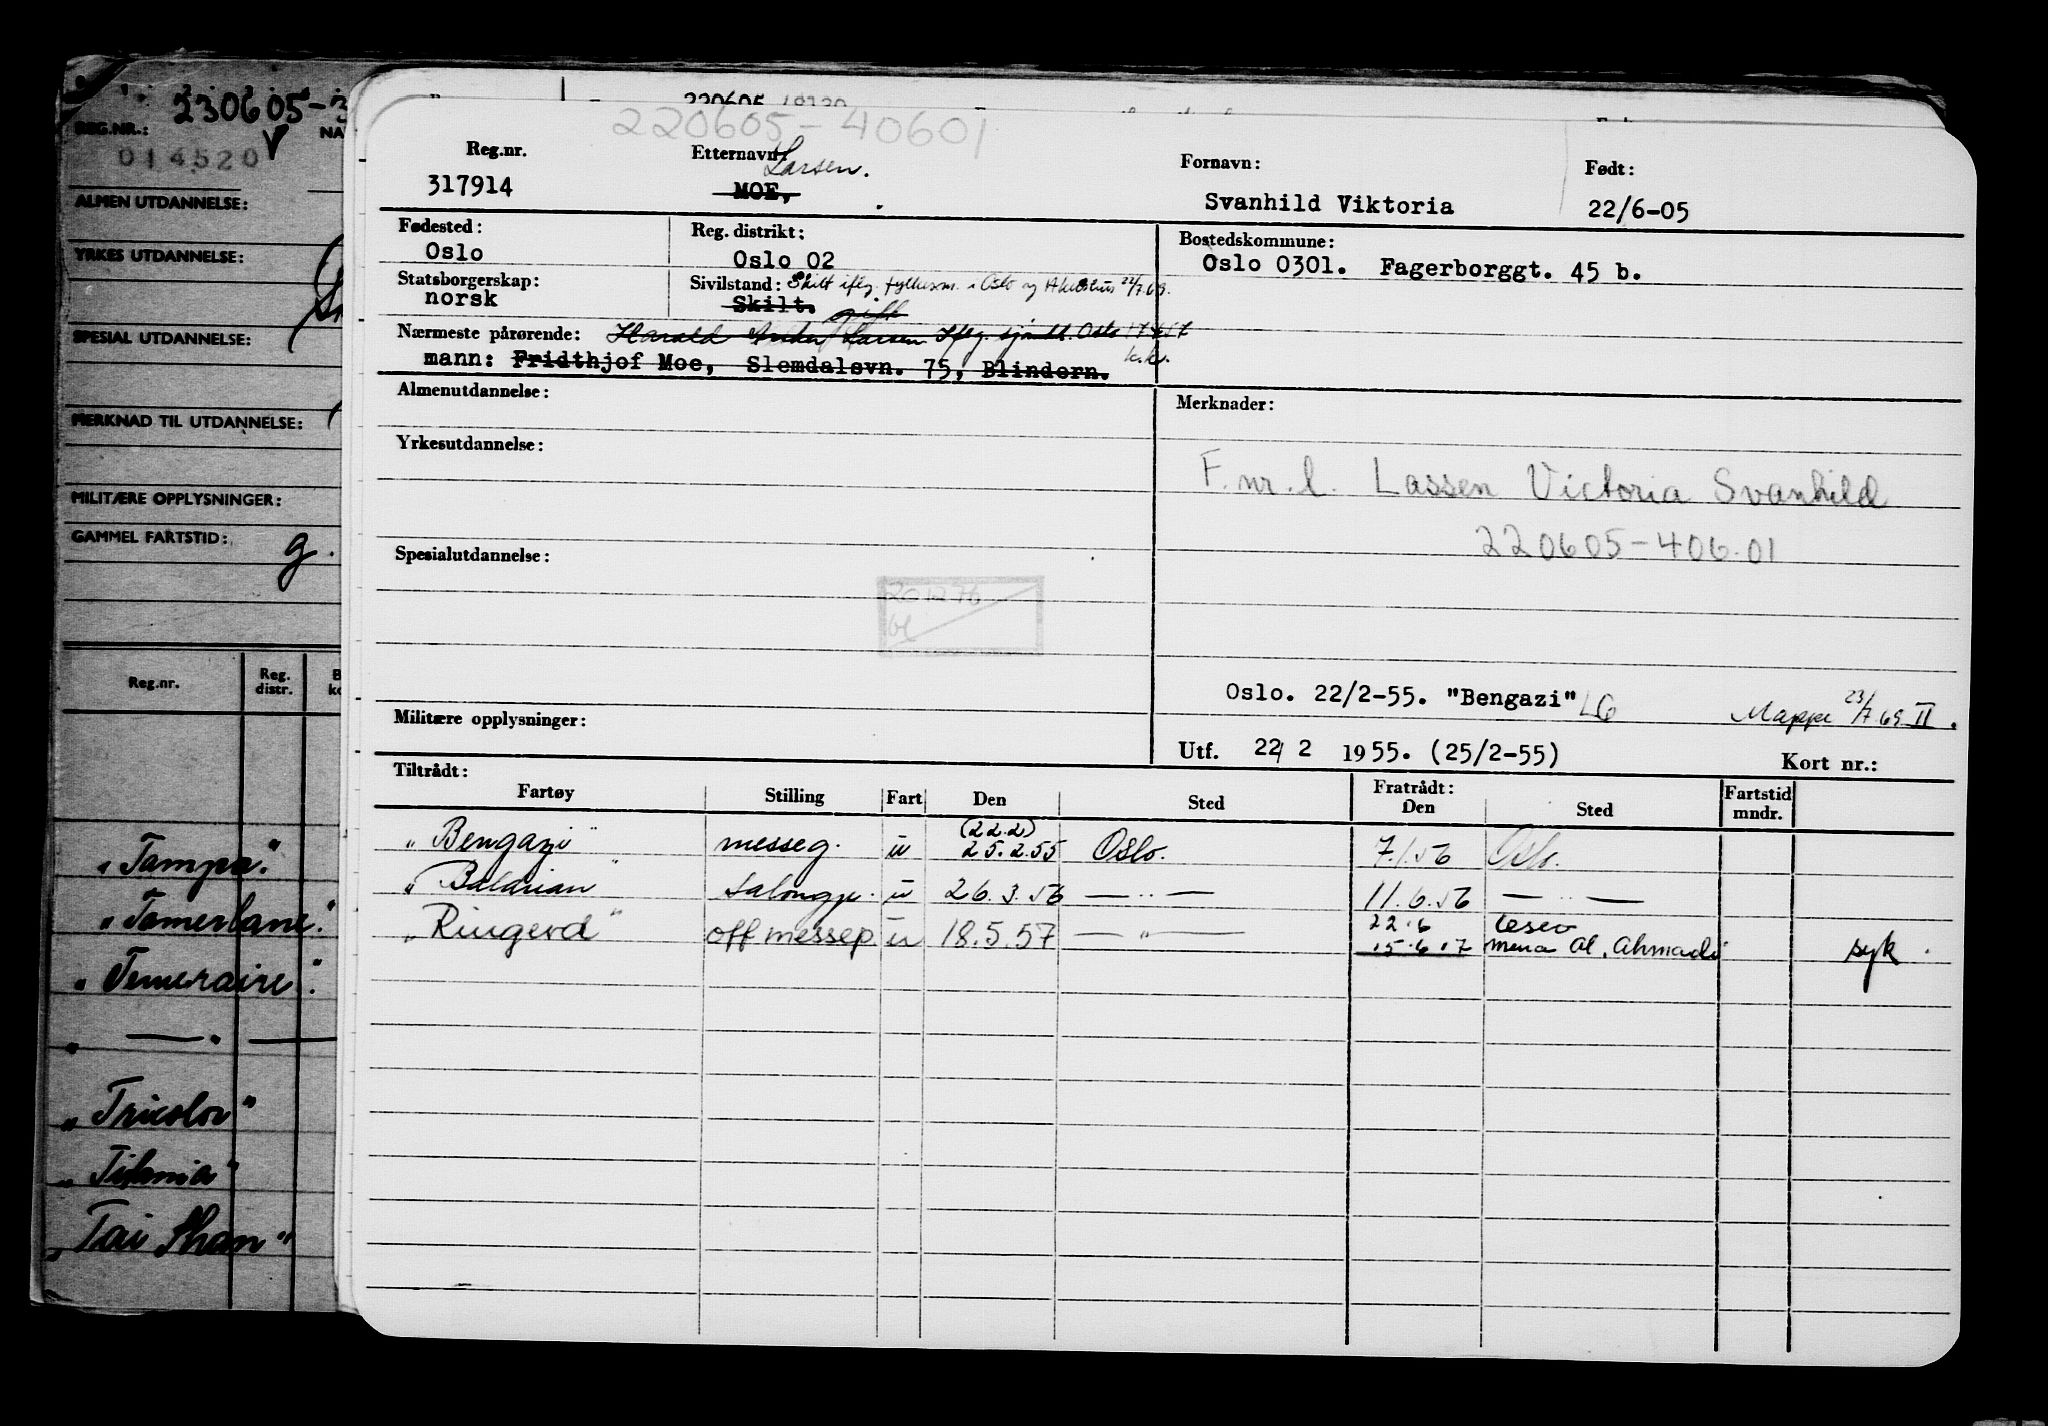 230605-3
REG.NR.:
NA
014520
ALMEN UTDANNELSE:
YRKES UTDANNELSE:
SPESIAL UTDANNELSE:
MERKNAD TIL UTDANNELSE:
MILITÆRE OPPLYSNINGER:
GAMMEL FARTSTID: g.
Reg.nr.
Reg. distr.
"Tampa".
"Tamerlane".
"Temeraire".
" — . —
"Tricolor"
"Titania"
"Tai Shan"
220605
220605-40601
Reg.nr. Etternavn: Larsen. Fornavn: Født:
317914 MOE, Svanhild Viktoria 22/6-05
Fødested: Reg. distrikt: Bostedskommune:
Oslo Oslo 02 Oslo 0301. Fagerborggt. 45 b.
Statsborgerskap: Sivilstand: Skilt iflg. fylkesm. i Oslo og Akershus 22/7.69.
norsk Skilt. gift
Nærmeste pårørende: Harald Larsen Iflg. Oslo
mann: Fridthjof Moe, Slemdalsvn. 75, Blindern. k.k.
Almenutdannelse: Merknader:
Yrkesutdannelse:
F. nr. l. Lassen Victoria Svanhild
220605-406.01
Spesialutdannelse:
201276
Oslo. 22/2-55. "Bengazi" LG Mappe 23/7 69 II.
Militære opplysninger:
Utf. 22/ 2 1955. (25/2-55) Kort nr.:
Tiltrådt: Fratrådt: Fartstid
Fartøy Stilling Fart Den Sted Den Sted mndr.
(22.2)
"Bengazi" messeg. u 25.2.55 Oslo. 7.1.56 Oslo.
"Balarian" salongp. u 26.3.56 — " — 11.6.56 — " —
"Ringerd" off messep. u 18.5.57 — " — 22.6
15.6.57 Mena Al. Ahmadi syk.